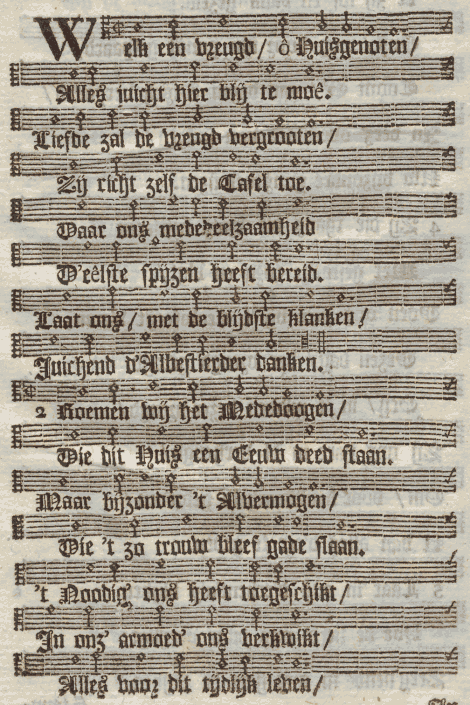 Welk een vreugd/ ô Huisgenoten/
Alles juicht hier blij te moê.
Liefde zal de vreugd vergrooten/
Zij richt zelf de Tafel toe.
Daar ons mededeelzaamheid
D'eêlste spijzen heeft bereid.
Laat ons/ met de blijdste klanken/
Juichend d'Albestierder danken.
2 Roemen wij het Mededoogen/
Die dit Huis een Eeuw deed staan.
Maar bijzonder 't Alvermogen/
Die 't zo trouw bleef gade slaan.
't Noodig' ons heeft toegeschikt/
In onz' armoed' ons verkwikt/
Alles voor dit tijdlijk leven/